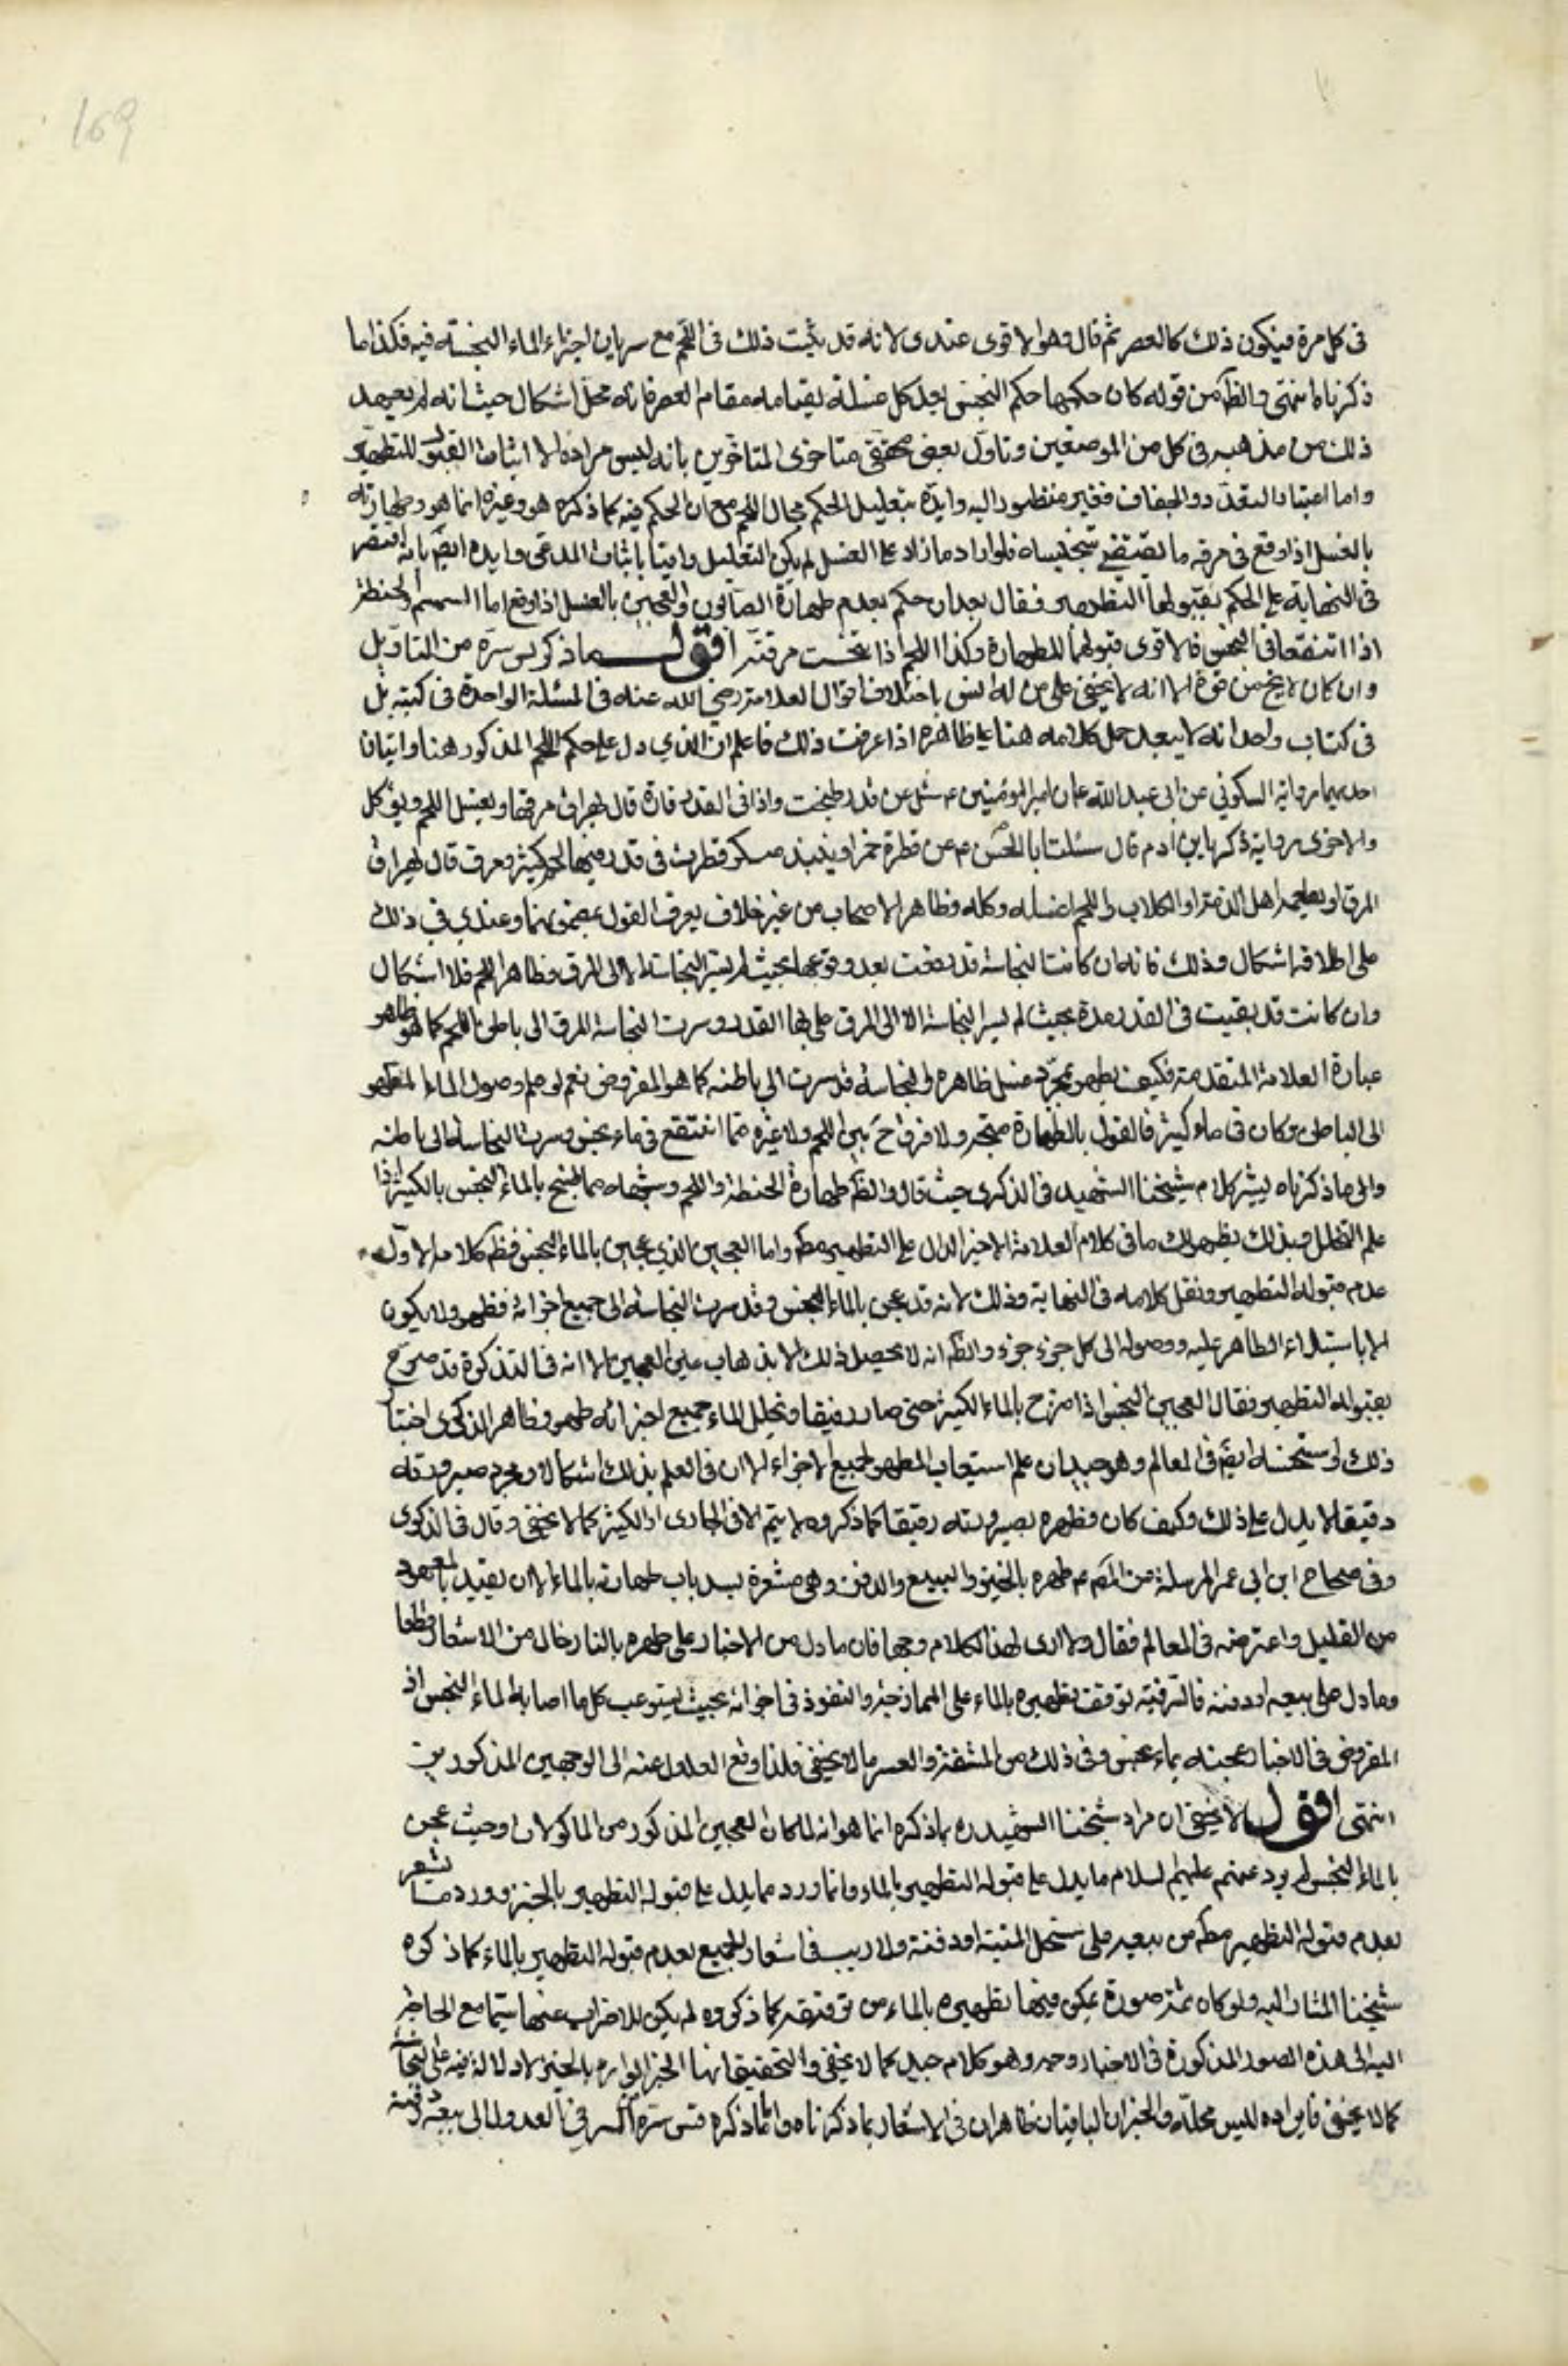 169
فى كل مرة فيكون ذلك كالعصر ثم قال وهو الاقوى عندى لانه قد يثبت ذلك فى اللحم مع سريان اجزاء الماء النجسة فيه فكذا ما
ذكرناه انتهى والظ من قوله كان حكمها حكم النجس بعد كل غسلة بقيامه مقام العصر فانه محل اشكال حيث انه لم يعهد
ذلك من مذهبه فى كل من الموضعين وتاول بعض محققى متاخرى المتاخرين بانه ليس مراده الا اثبات القبول للتطهير
واما اعتبار التعدد والجفاف فغير منظور اليه وايده بتعليل الحكم بحال اللحم مع ان الحكم فيه كما ذكره هو وغيره انما هو طهارته
بالغسل اذا وقع فى مرقه ما يقتضى تنجيسه فلو اراد ما زاد على الغسل لم يكن التعليل وافيا باثبات المدعى وايده ايض بانه اقتصر
فى النهاية على الحكم بقبولها التطهير فقال بعد ان حكم بعدم طهارة الصابون والعجين بالغسل اذا وقع اما السمسم والحنطة
اذا انتقعا فى النجس فالاقوى قبولهما للطهارة وكذا اللحم اذا نجست مرقته اقول ما ذكره س سره من التاويل
وان كان لا يخ من قوة الا انه لا يخفى على من له انس باختلاف اقوال العلامة رضي الله عنه فى المسئلة الواحدة فى كتبه بل
فى كتاب واحد انه لا يبعد حمل كلامه هنا على ظاهره اذا عرفت ذلك فاعلم ان الذي دل على حكم اللحم المذكور هنا روايتان
احديهما رواية السكوني عن ابى عبد الله ع ان امير المؤمنين ع سئل عن قدر طبخت واذا فى القدر فارة قال يهراق مرقها ويغسل اللحم ويؤكل
والاخرى رواية زكريا بن ادم قال سئلت ابا الحسن ع عن قطرة خمر او نبيذ مسكر قطرت فى قدر فيها لحم كثير ومرق قال يهراق
المرق او يطعمه اهل الذمة او الكلاب واللحم اغسله وكله وظاهر الاصحاب من غير خلاف يعرف القول بمضمونهما وعندي في ذلك
على اطلاقه اشكال وذلك فانه ان كانت النجاسة قد وقعت بعد وقوعها بحيث لم يسر النجاسة الا الى المرق وظاهر اللحم فلا اشكال
وان كانت قد بقيت فى القدر مدة بحيث لم يسر النجاسة الا الى المرق على بها القدر وسرت النجاسة المرق الى باطن اللحم كما هو ظاهر
عبارة العلامة المتقدمة فكيف يطهر بمجرد غسل ظاهره والنجاسة قد سرت الي باطنه كما هو المفروض نعم لو علم وصول الماء المطهر
الى الباطن وكان فى ماء كثير فالقول بالطهارة متجه ولا فرق ح بين اللحم ولا غيره مما انتقع فى ماء نجس وسرت النجاسة الى باطنه
والى ما ذكرناه يشير كلام شيخنا الشهيد فى الذكرى حيث قال والظ طهارة الحنطة واللحم وشبهه مما طبخ بالماء النجس بالكثير اذا
علم التخلل وبذلك يظهر لك ما فى كلام العلامة الاخير الدال على التطهير مط واما العجين الذي عجن بالماء النجس فظ كلامه الاول
عدم قبوله التطهير ونقل كلامه فى النهاية وذلك لانه قد عجن بالماء النجس وقد سرت النجاسة الى جميع اجزائه فطهره لا يكون
الا باستيلاء الطاهر عليه ووصوله الى كل جزء جزء والظ انه لا يحصل ذلك الا بذهاب عين العجين الا انه فى التذكرة قد صرح
بقبوله التطهير فقال العجين النجس اذا مزج بالماء الكثير حتى صار رقيقا وتخلل الماء جميع اجزائه طهر وظاهر الذكرى اختيار
ذلك واستحسنه ايض فى المعالم وهو جيد ان علم استيعاب المطهر لجميع الاجزاء الا ان فى العلم بذلك اشكالا ومجرد صيرورته
رقيقا لا يدل على ذلك وكيف كان فطهره بصيرورته رقيقا كما ذكروه لا يتم الا فى الجارى او الكثير كما لا يخفى وقال فى الذكرى
وفى صحاح ابن ابي عمير المرسلة عن الص ع طهره بالخبز والبيع والدفن وهى مشعرة بسد باب طهارته بالماء الا ان يقيد بالمعهود
من القليل واعترضه فى المعالم فقال ولا ارى لهذا الكلام وجها فان ما دل من الاخبار على طهره بالنار خال من الاشعار قطعا
وما دل على بيعه او دفنه فالترقيه توقف تطهيره بالماء على الممازجة والنفوذ فى اجزائه بحيث يستوعب كل ما اصابه الماء النجس اذ
المفروض فى الاخبار عجنه بماء نجس وفى ذلك من المشقة والعسر ما لا يخفى فلذا وقع العدول عنه الى الوجهين المذكورين
انتهى اقول لا يخفى ان مراد شيخنا الشهيد ره بما ذكره انما هو انه لما كان العجين المذكور من الماكولات وحيث عجن
بالماء النجس لم يرد عنهم عليهم السلام ما يدل على قبوله التطهير بالماء وانما ورد مما يدل على قبوله التطهير بالخبز وورد ما يشعر
بعدم قبوله التطهير مط من بيعه على مستحل الميتة او دفنه ولا ريب فى اشعار الجميع بعدم قبوله التطهير بالماء كما ذكره
شيخنا المشار اليه ولو كان ثمة صورة يمكن فيها تطهيره بالماء من ترقيقه كما ذكروه لم يكن للاضراب عنها سيما مع الحاجة
اليه الى هذه الصور المذكورة فى الاخبار وجه وهو كلام جيد كما لا يخفى والتحقيق انها الخبز الوارد بالخبز لا دلالة فيه على النجاسة
كما لا يخفى فايراده ليس محله والخبران الباقيان ظاهران فى الاشعار بما ذكرناه واما ما ذكره قدس سره السر فى العدول الى بيعه ودفنه